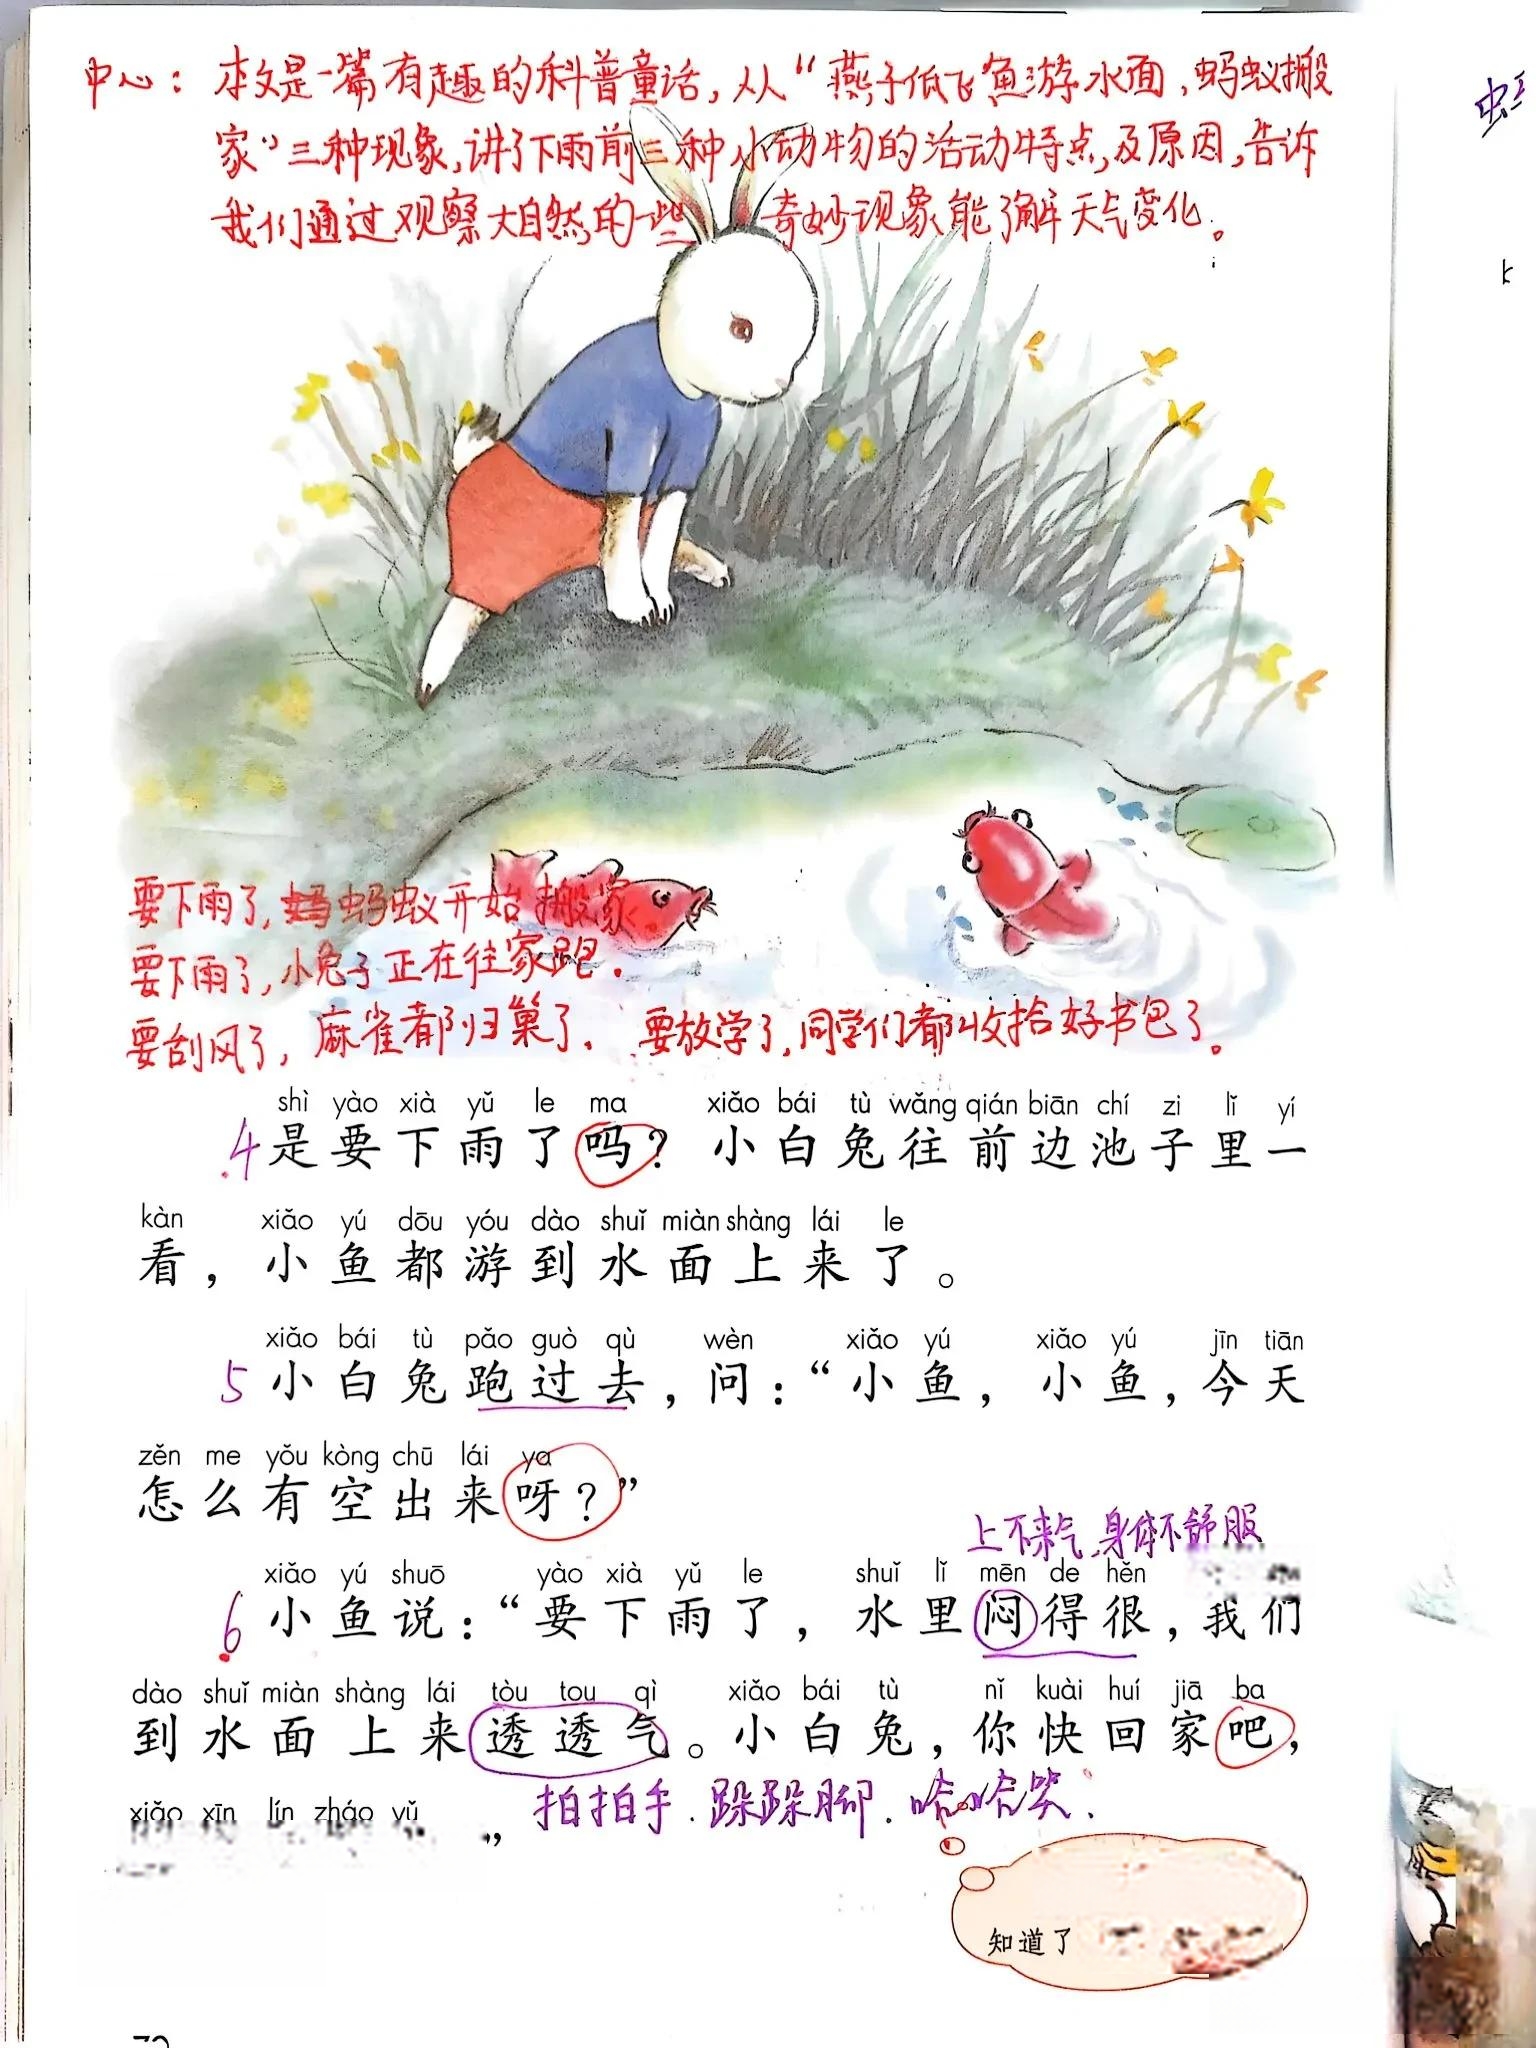 中心：本文是一篇有趣的科普童话，从“燕子低飞鱼游水面，蚂蚁搬
家”三种现象，讲了下雨前三种小动物的活动特点，及原因，告诉
我们通过观察大自然的一些奇妙现象能了解天气变化。
要下雨了，蚂蚁开始搬家。
要下雨了，小兔子正在往家跑。
要刮风了，麻雀都归巢了. 要放学了，同学们都收拾好书包了。
shì yào xià yǔ le ma xiǎo bái tù wǎng qián biān chí zi lǐ yí
4 是要下雨了吗？小白兔往前边池子里一
kàn xiǎo yú dōu yóu dào shuǐ miàn shàng lái le
看，小鱼都游到水面上来了。
xiǎo bái tù pǎo guò qù wèn xiǎo yú xiǎo yú jīn tiān
5 小白兔跑过去，问：“小鱼，小鱼，今天
zěn me yǒu kòng chū lái ya
怎么有空出来呀？”
上不来气，身体不舒服
xiǎo yú shuō yào xià yǔ le shuǐ lǐ mēn de hěn
6 小鱼说：“要下雨了，水里闷得很，我们
dào shuǐ miàn shàng lái tòu tou qì xiǎo bái tù nǐ kuài huí jiā ba
到水面上来透透气。小白兔，你快回家吧，
xiǎo xīn lín zháo yǔ
” 拍拍手. 跺跺脚. 哈哈笑.
知道了